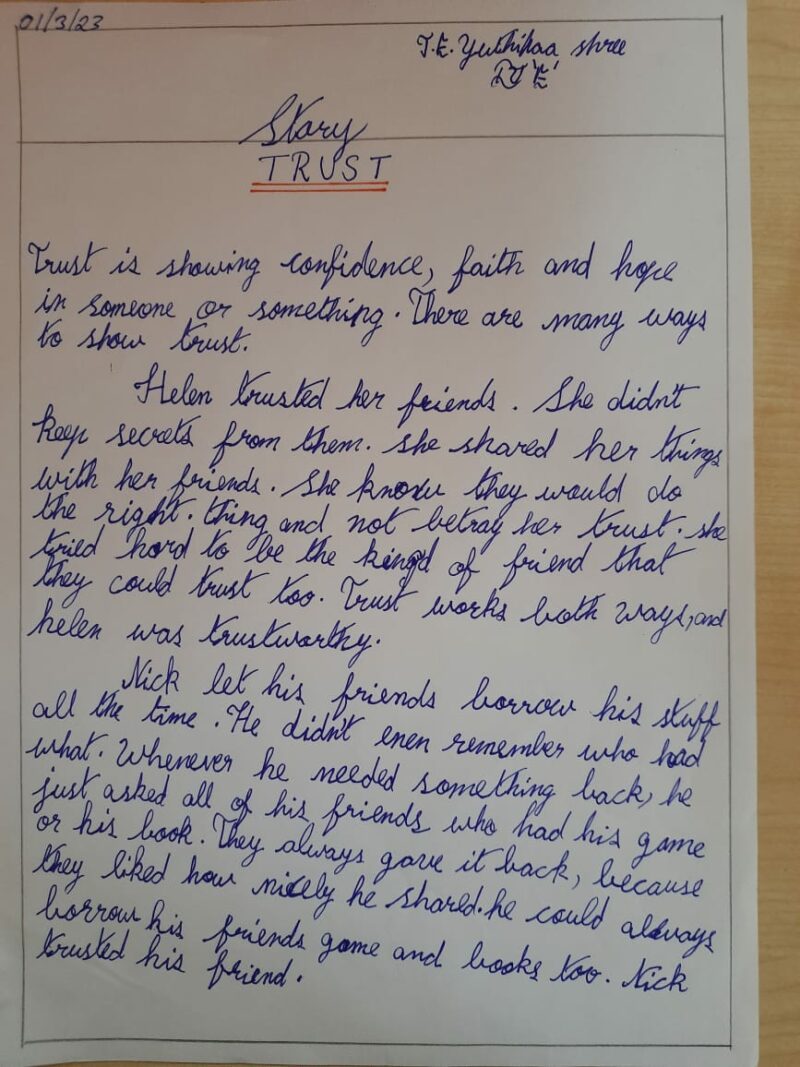 01/3/23
T.E. Yuthikaa shree
'E'
Story
TRUST
Trust is showing confidence, faith and hope
in someone or something. There are many ways
to show trust.
Helen trusted her friends. She didn't
keep secrets from them. she shared her things
with her friends. She know they would do
the right. thing and not betray her trust. she
tried hard to be the kind of friend that
they could trust too. Trust works both ways, and
helen was trustworthy.
Nick let his friends borrow his stuff
all the time. He didn't even remember who had
what. Whenever he needed something back, he
just asked all of his friends who had his game
or his book. They always gave it back, because
they liked how nicely he shared. he could always
borrow his friends game and books too. Nick
trusted his friend.